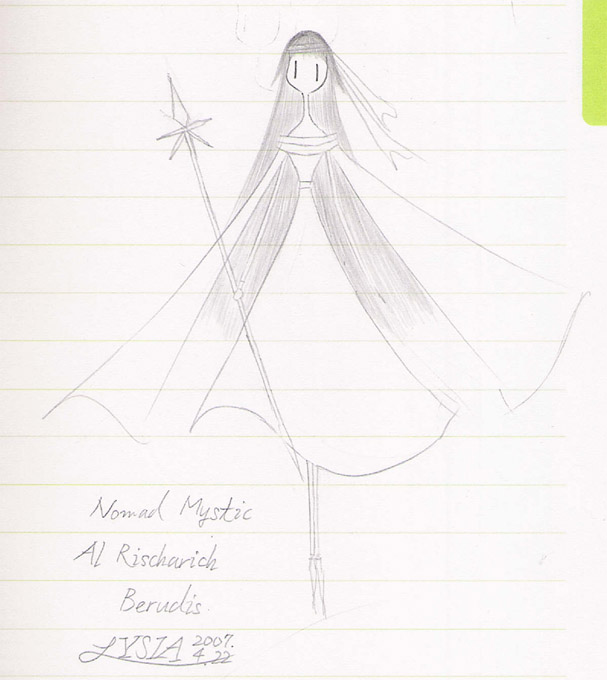 Nomad Mystic
Al Rischarich
Berudis.
LYSIA 2007.
4.22